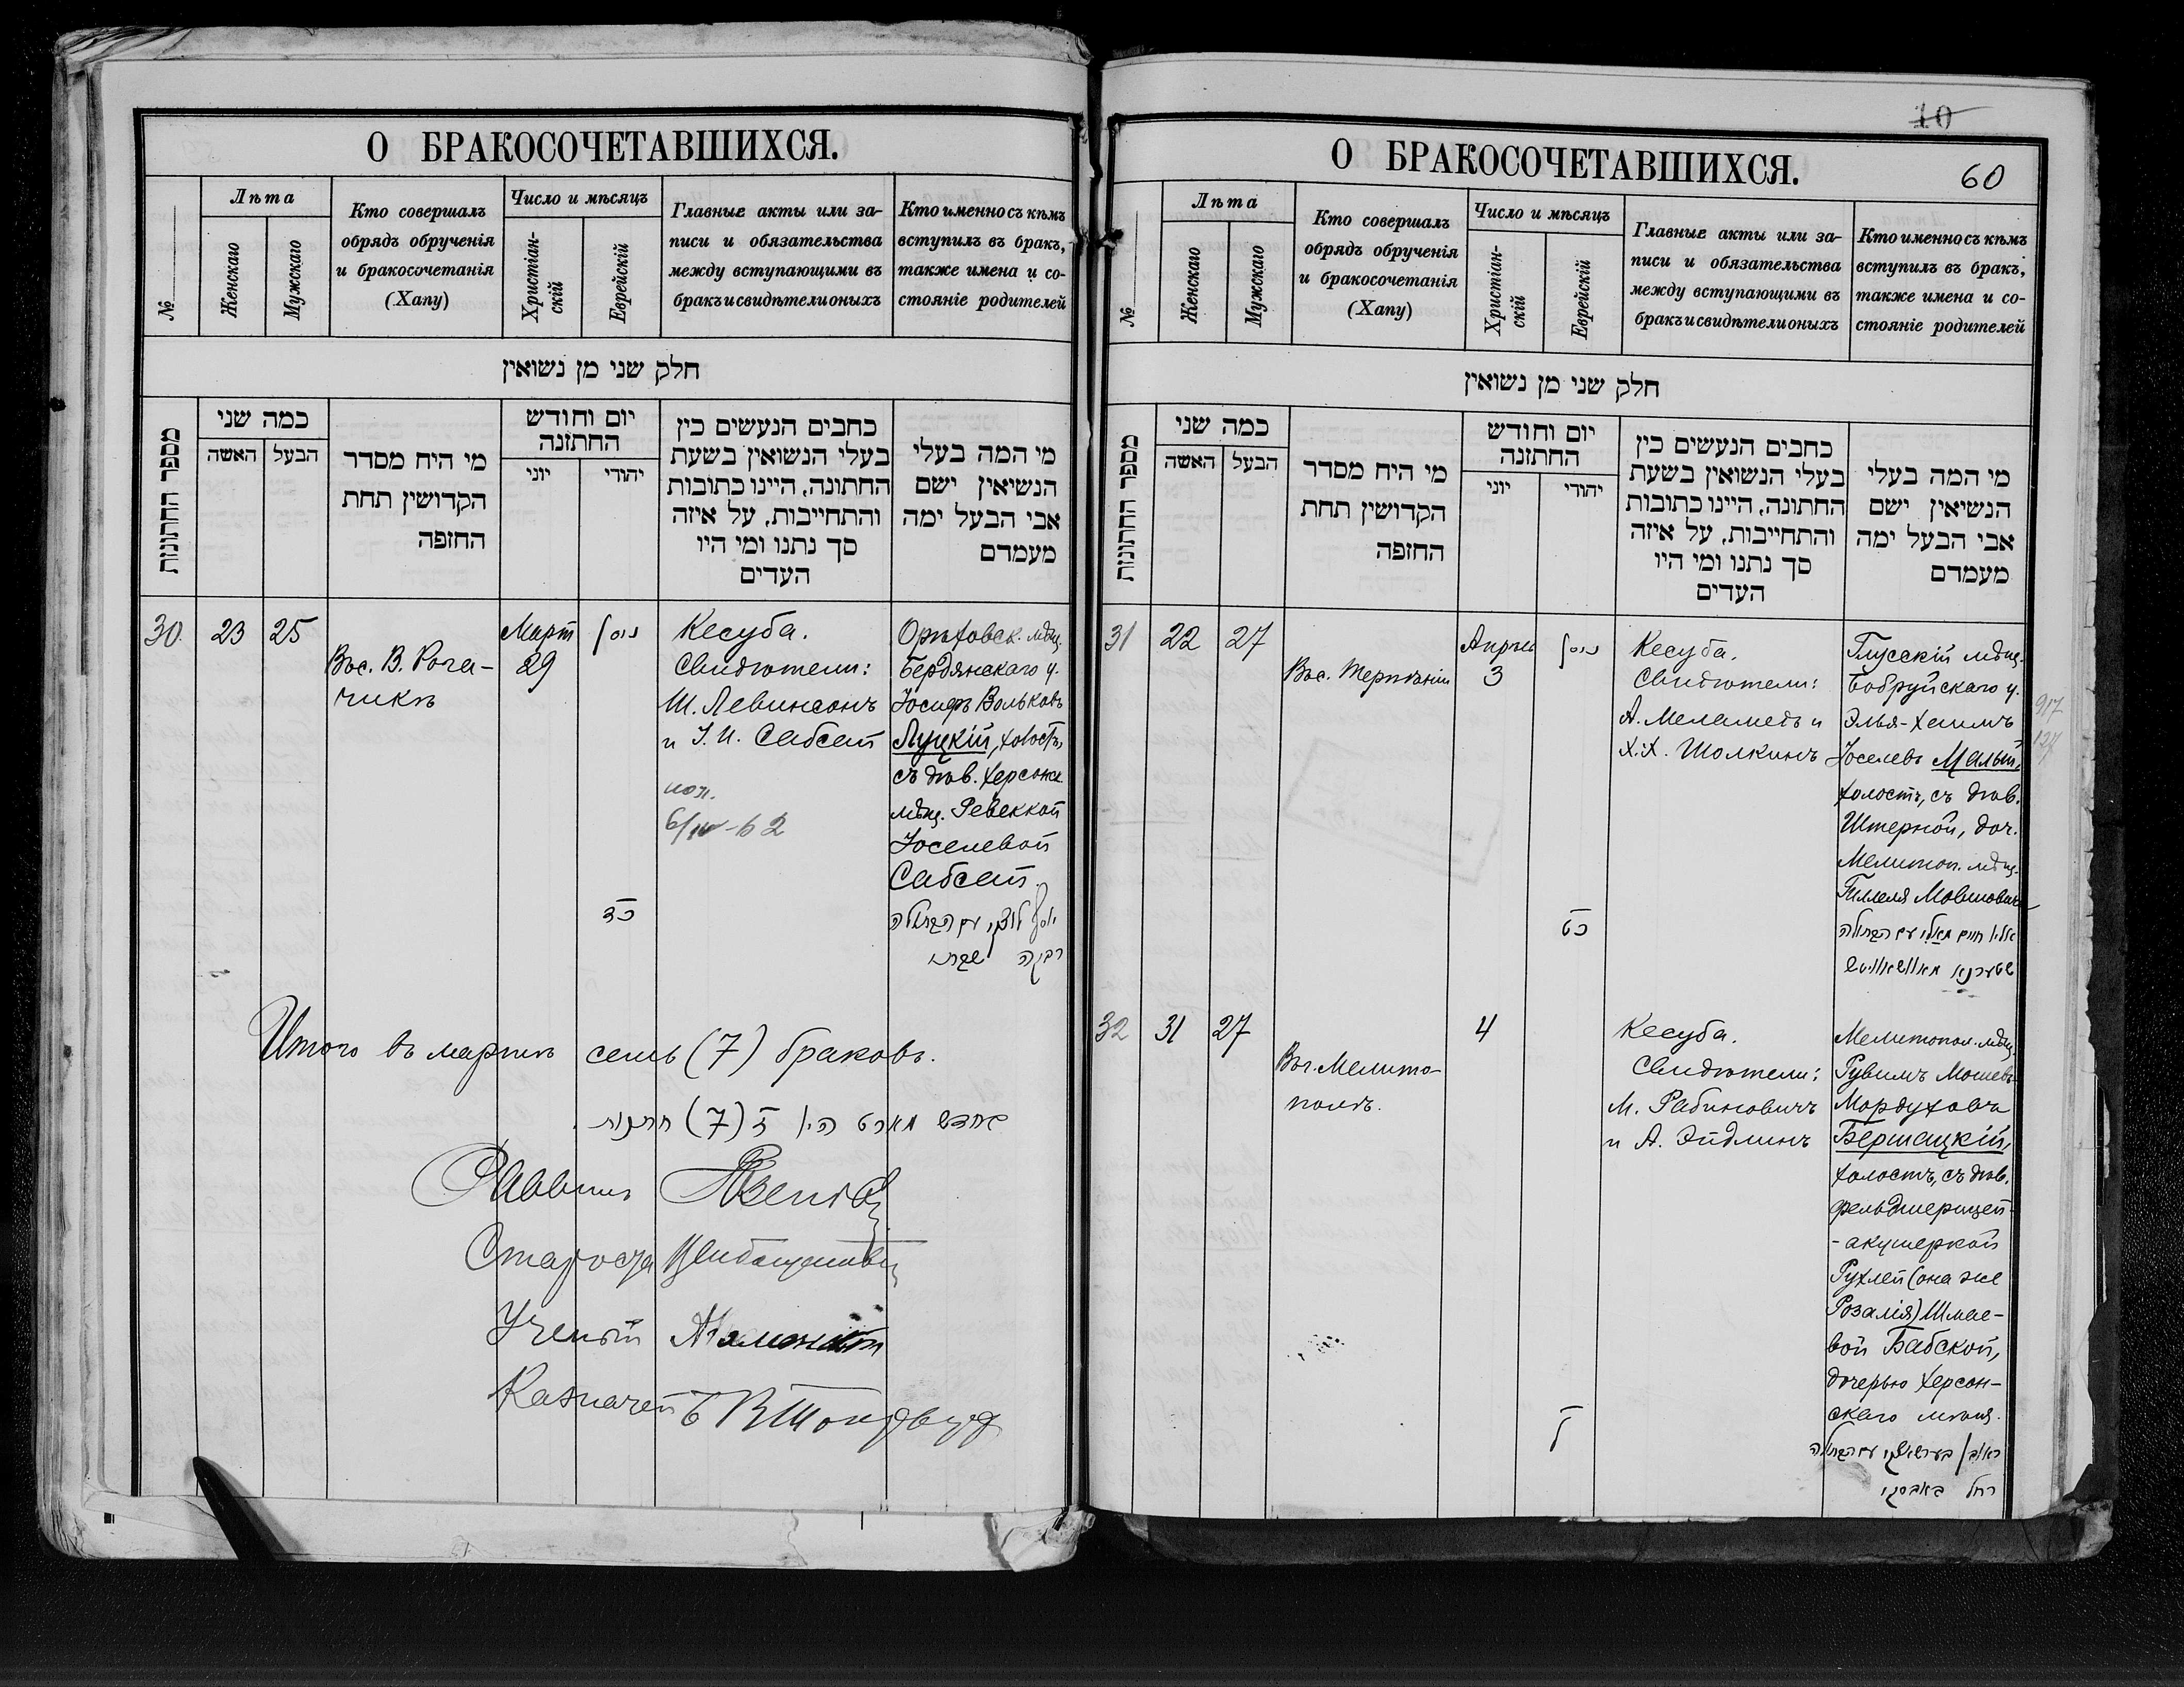 О БРАКОСОЧЕТАВШИХСЯ.
№
Лѣта
Женскаго
Мужскаго
Кто совершалъ
обрядъ обрученія
и бракосочетанія
(Хапу)
Число и мѣсяцъ
Христіан-
скій
Еврейскій
Главные акты или за-
писи и обязательства
между вступающими въ
бракъ и свидѣтели оныхъ
Кто именно съ кѣмъ
вступилъ въ бракъ,
также имена и со-
стояніе родителей
חלק שני מן נשואין
מספר החתונות
כמה שני
האשה
הבעל
מי היה מסדר
הקדושין תחת
החופה
יום וחודש
החתונה
יוני
יהודי
כתבים הנעשים בין
בעלי הנשואין בשעת
החתונה, היינו כתובות
והתחייבות, על איזה
סך נתנו ומי היו
העדים
מי המה בעלי
הנשיאין ישם
אבי הבעל ימה
מעמדם
30
23
25
Въ с. В. Рога-
чикѣ
Март
29
ניסן
כד
Кесуба.
Свидѣтели:
Ш. Левинсонъ
и І. И. Сабсай
6/IV-62
Орѣховск. мѣщ.
Бердянскаго у.
Іосифъ Вольковъ
Луцкій, холостъ,
съ дѣв. Херсонск.
мѣщ. Ревеккой
Іоселевой
Сабсай.
יוסף לוצקי עם הבתולה
רבקה
Итого въ мартѣ семь (7) браковъ.
בחדש מארט היו ז (7) חתונות
Раввинъ
Староста
Ученый
Казначей
О БРАКОСОЧЕТАВШИХСЯ.
10
60
№
Лѣта
Женскаго
Мужскаго
Кто совершалъ
обрядъ обрученія
и бракосочетанія
(Хапу)
Число и мѣсяцъ
Христіан-
скій
Еврейскій
Главные акты или за-
писи и обязательства
между вступающими въ
бракъ и свидѣтели оныхъ
Кто именно съ кѣмъ
вступилъ въ бракъ,
также имена и со-
стояніе родителей
חלק שני מן נשואין
מספר החתונות
כמה שני
האשה
הבעל
מי היה מסדר
הקדושין תחת
החופה
יום וחודש
החתונה
יוני
יהודי
כתבים הנעשים בין
בעלי הנשואין בשעת
החתונה, היינו כתובות
והתחייבות, על איזה
סך נתנו ומי היו
העדים
מי המה בעלי
הנשיאין ישם
אבי הבעל ימה
מעמדם
31
22
27
Въ с. Терпѣніи
Апрѣль
3
ניסן
כט
Кесуба.
Свидѣтели:
А. Меламедъ и
Х. Шолкинъ
Глусскій мѣщ.
Бобруйскаго у.
Элья-Хаимъ
Іоселевъ Малый,
холостъ, съ дѣв.
Штерной, доч.
Мелитоп. мѣщ.
Гиллеля Мовшовича
אליו חיים מאלי עם הבתולה
שטערנא
917
32
31
27
Въ г. Мелито-
полѣ.
4
ל
Кесуба.
Свидѣтели:
М. Рабиновичъ
и А. Эйдлинъ
Мелитопол. мѣщ.
Рувимъ Мошевъ-
Мордуховъ
Бершацкій,
холостъ, съ дѣв.
фельдшерицей-
-акушеркой
Рухлей (она же
Розалія) Шмае-
вой Бабской,
дочерью Херсон-
скаго мѣщ.
ראובן בערשאצקי עם הבתולה
רחל באבסקי